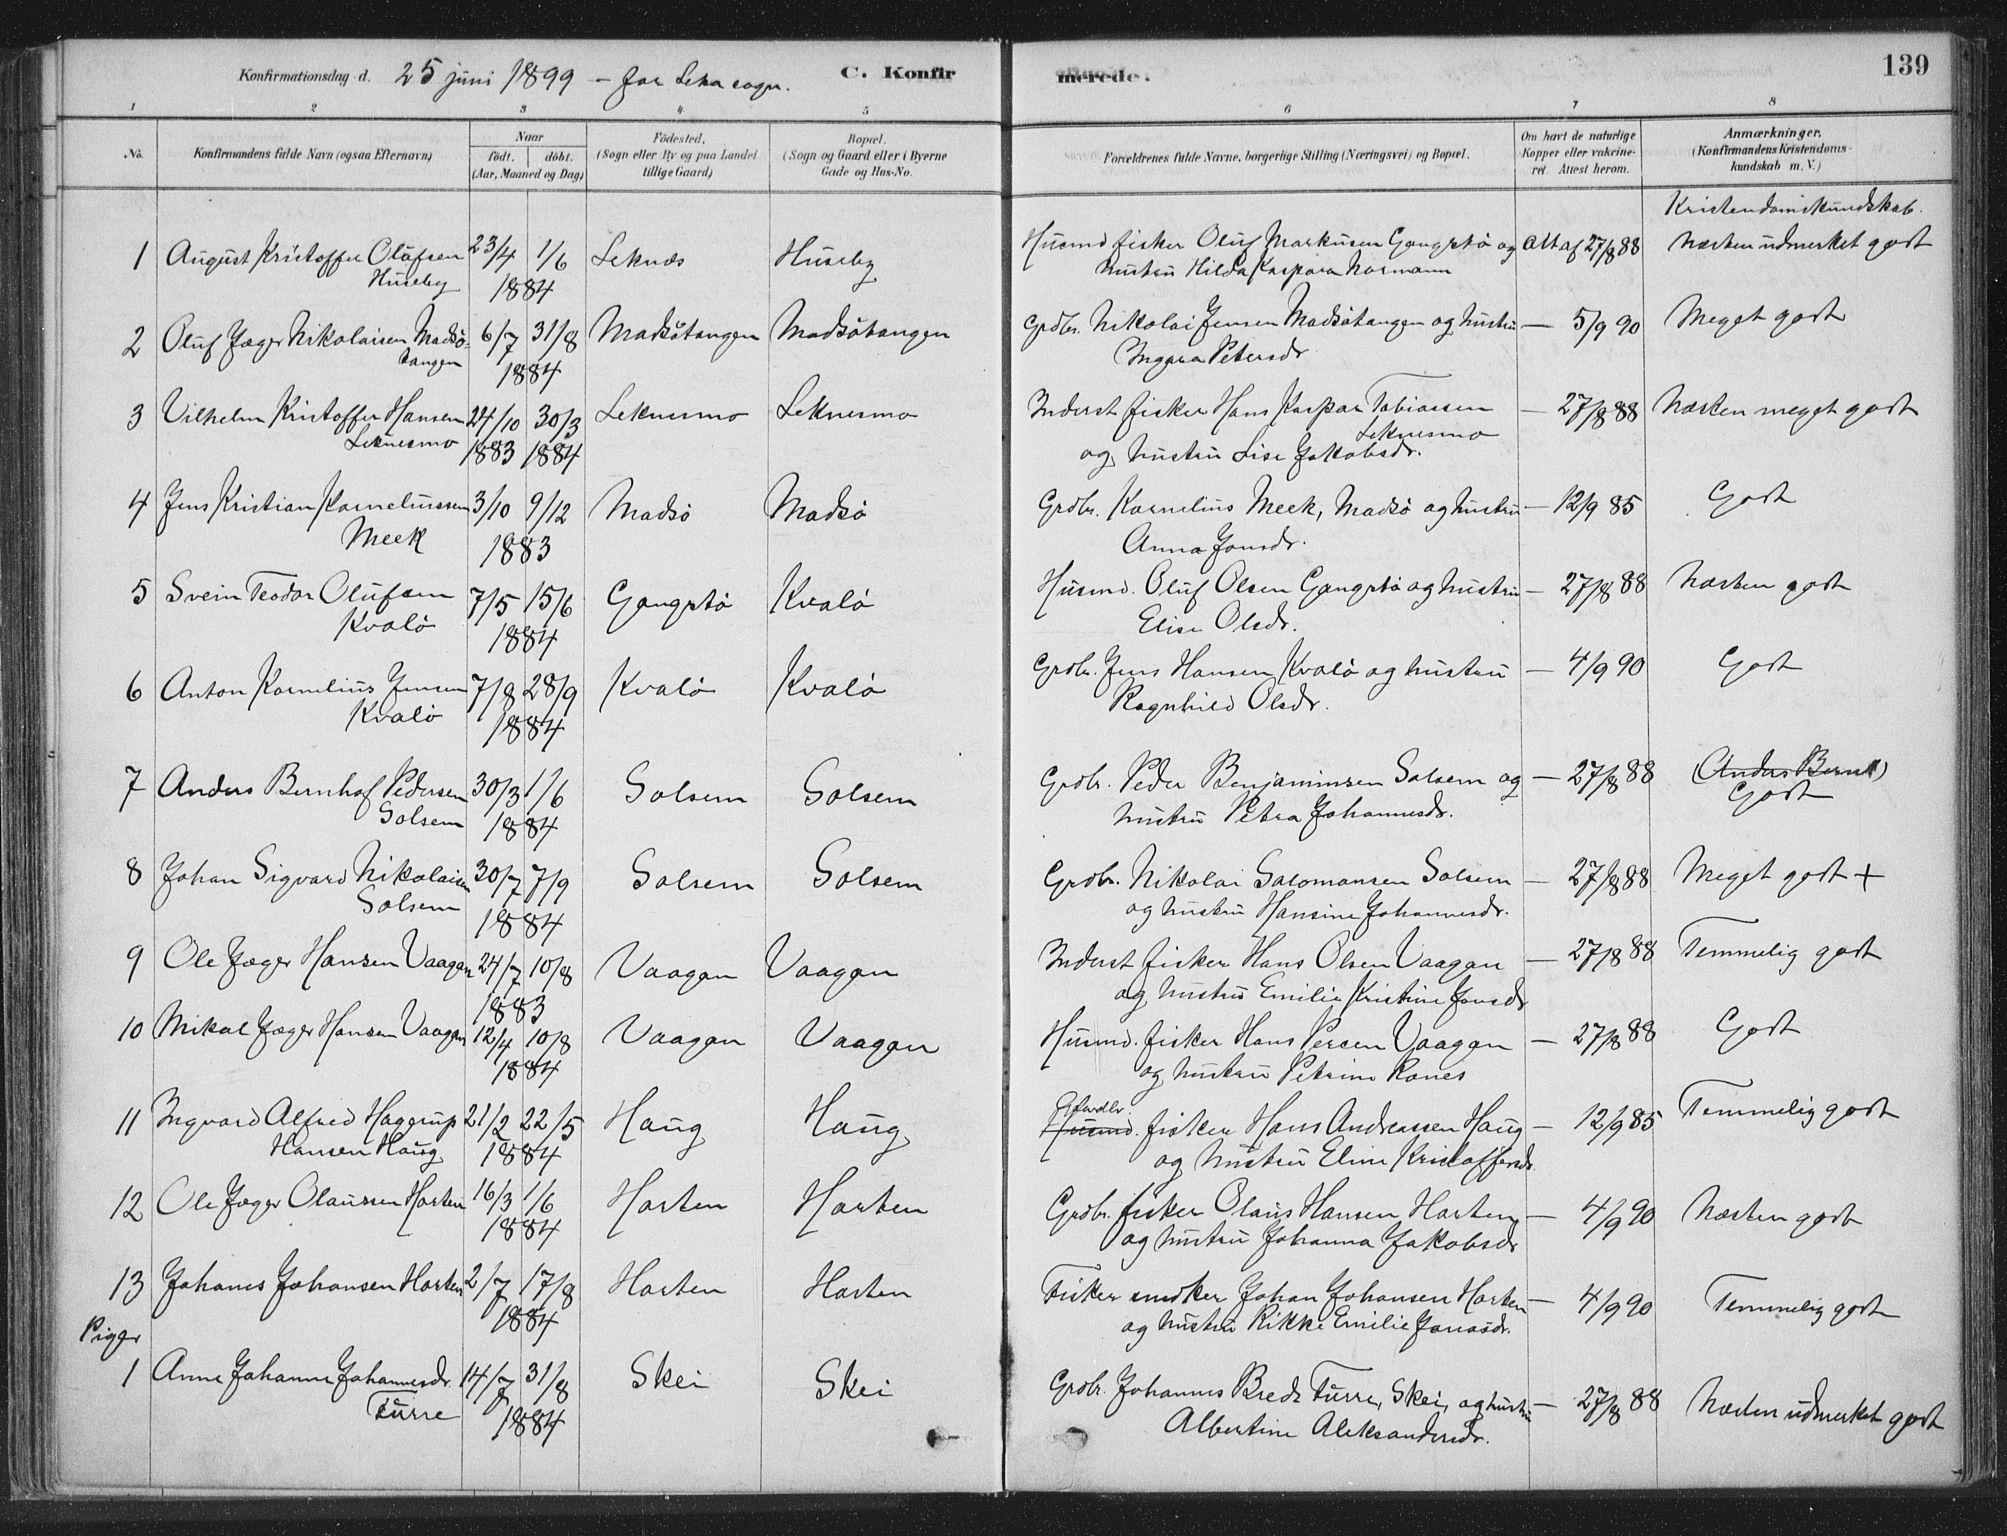 Konfirmationsdag d. 25 juni 1899 - for Leka sogn.
C. Konfirmerede.
139
1 2 3 4 5 6 7 8
No.
Konfirmandens fulde Navn (ogsaa Efternavn)
Naar
födt. döbt.
(Aar, Maaned og Dag)
Födested.
(Sogn eller By og paa Landet
tillige Gaard)
Bopæl.
(Sogn og Gaard eller i Byerne
Gade og Hus-No.
Forældrenes fulde Navne, borgerlige Stilling (Næringsvei) og Bopæl.
Om havt de naturlige
Kopper eller vakcine-
ret. Attest herom.
Anmærkninger.
(Konfirmandens Kristendoms-
kundskab m. V.)
Kristendomskundskab.
1 August Kristoffer Olufsen 23/4 1/6 Leknæs Huseby Husmd fisker Oluf Markusen Gangstø og att af 27/8 88 Næsten udmerket godt
Huseby 1884 hustru Hilda Kaspara Normann
2 Oluf Jæger Nikolaisen Madsø- 6/7 31/8 Madsøtangen Madsøtangen Grdbr. Nikolai Jensen Madsøtangen og hustru — 5/9 90 Meget godt
tangen 1884 Ingara Petersdr
3 Vilhelm Kristoffer Hansen 24/10 30/3 Leknesmo Leknesmo Inderst fisker Hans Kaspar Tobiassen — 27/8 88 Næsten meget godt
Leknesmo 1883 1884 Leknesmo
og hustru Lise Jakobsdr.
4 Jens Kristian Korneliussen 3/10 9/12 Madsø Madsø Grdbr. Kornelius Meek, Madsø og hustru — 12/9 85 Godt
Meek 1883 Anna Jonsdr.
5 Svein Teodor Olufsen 7/5 15/6 Gangstø Kvalø Husmd. Oluf Olsen Gangstø og hustru — 27/8 88 Næsten godt
Kvalø 1884 Elise Olsdr.
6 Anton Kornelius Jensen 7/8 28/9 Kvalø Kvalø Grdbr. Jens Hansen Kvalø og hustru — 4/9 90 Godt
Kvalø 1884 Ragnhild Olsdr.
7 Anders Bernhof Pedersen 30/3 1/6 Solsem Solsem Grdbr. Peder Benjaminsen Solsem og — 27/8 88 (Anders Bernt)
Solsem 1884 hustru Petra Johannesdr. Godt
8 Johan Sigvard Nikolaisen 30/7 7/9 Solsem Solsem Grdbr. Nikolai Salomonsen Solsem — 27/8 88 Meget godt +
Solsem 1884 og hustru Hansine Johannesdr.
9 Ole Jæger Hansen Vaagan 24/7 10/8 Vaagan Vaagan Inderst fisker Hans Olsen Vaagan — 27/8 88 Temmelig godt
1883 og hustru Emilie Kristine Jonsdr
10 Mikal Jæger Hansen Vaagan 12/4 10/8 Vaagan Vaagan Husmd. fisker Hans Persen Vaagan — 27/8 88 Godt
1884 og hustru Petrine Ranes
11 Ingvard Alfred Hagerup 21/2 22/5 Haug Haug Husmd. fisker Hans Andreassen Haug — 12/9 85 Temmelig godt
Hansen Haug 1884 og hustru Eline Kristoffersdr
12 Ole Jæger Olaussen Horten 16/3 1/6 Horten Horten Grdbr. fisker Olaus Hansen Horten — 4/9 90 Næsten godt
1884 og hustru Johanna Jakobsdr
13 Johanes Johansen Horten 2/7 17/8 Horten Horten Fisker snedker Johan Johansen Horten — 4/9 90 Temmelig godt
1884 og hustru Rikke Emilie Jonasdr.
Piger
1 Anne Johanne Johannesdr. 14/7 31/8 Skei Skei Grdbr. Johannes Breds Furre, Skei, og hustru — 27/8 88 Næsten udmerket godt
Furre 1884 Albertine Aleksandersdr.